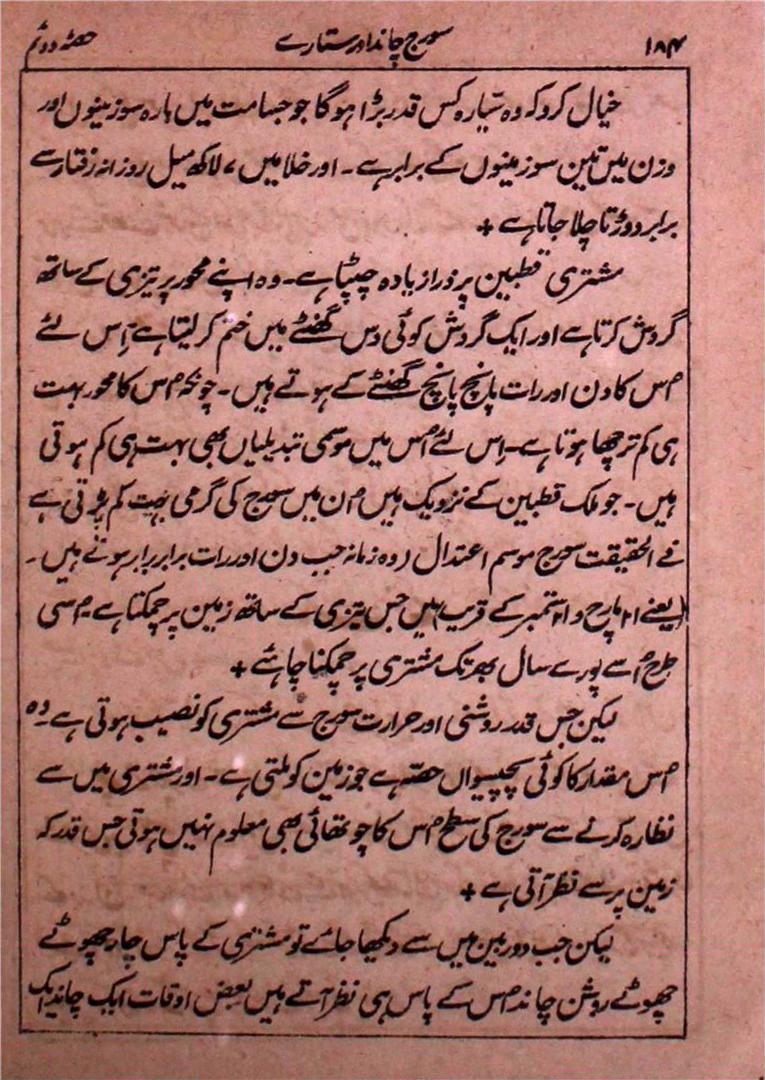 ۱۸۴ سورج چاند اور ستارے حصہ دوئم
خیال کرو کہ وہ سیّارہ کس قدر بڑا ہوگا جو جسامت میں بارہ سو زمینوں اور
وزن میں تین سو زمینوں کے برابر ہے ۔ اور خلا میں ۷ لاکھ میل روزانہ رفتار سے
برابر دوڑتا چلا جاتا ہے +
مشتری قطبین پر ذرا زیادہ چپٹا ہے ۔ وہ اپنے محور پر تیزی کے ساتھ
گردش کرتا ہے اور ایک گردش کوئی دس گھنٹے میں ختم کر لیتا ہے اِس لئے
اُس کا دن اور رات پانچ پانچ گھنٹے کے ہوتے ہیں ۔ چونکہ اُس کا محور بہت
ہی کم ترچھا ہوتا ہے ۔ اِس لئے اُس میں موسمی تبدیلیاں بھی بہت ہی کم ہوتی
ہیں ۔ جو ملک قطبین کے نزدیک ہیں اُن میں سورج کی گرمی بہت کم پڑتی ہے
فے الحقیقت سورج موسم اعتدال (وہ زمانہ جب دن اور رات برابر برابر ہوتے ہیں ۔
(یعنے ۲۱ مارچ و ۲۱ ستمبر کے قریب) میں جس تیزی کے ساتھ زمین پر چمکتا ہے اُسی
طرح اُسے پورے سال بھر تک مشتری پر چمکنا چاہئے +
لیکن جس قدر روشنی اور حرارت سورج سے مشتری کو نصیب ہوتی ہے ۔ وہ
اُس مقدار کا کوئی پچیسواں حصّہ ہے جو زمین کو ملتی ہے ۔ اور مشتری میں سے
نظارہ کرنے سے سورج کی سطح اُس کا چوتھائی بھی معلوم نہیں ہوتی جس قدر کہ
زمین پر سے نظر آتی ہے +
لیکن جب دوربین میں سے دیکھا جائے تو مشتری کے پاس چار چھوٹے
چھوٹے روشن چاند اُس کے پاس ہی نظر آتے ہیں بعض اوقات ایک چاند ایک